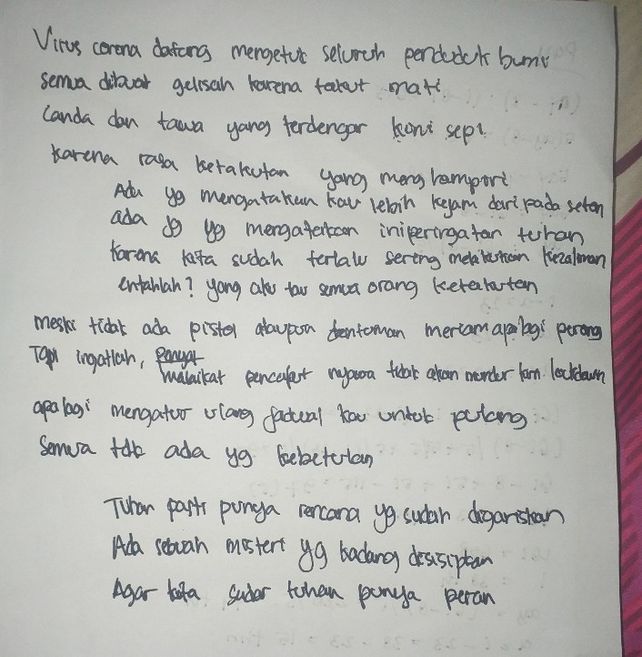 Virus corona datang mengetuk seluruh penduduk bumi
semua dibuat gelisah karena takut mati
Canda dan tawa yang terdengar kini sepi
karena rasa ketakutan yang menghampiri
Ada yg mengatakan kau lebih kejam daripada setan
ada jg yg mengatakan ini peringatan tuhan
karena kita sudah terlalu sering melakukan kezaliman
entahlah? yang aku tau semua orang ketakutan
meski tidak ada pistol ataupun dentuman meriam apalagi perang
Tapi ingatlah, malaikat pencabut nyawa tidak akan mundur krn. lockdown
apalagi mengatur ulang jadwal kau untuk pulang
semua tdk ada yg kebetulan
Tuhan pasti punya rencana yg sudah digariskan
Ada sebuah misteri yg kadang disisipkan
Agar kita sadar tuhan punya peran